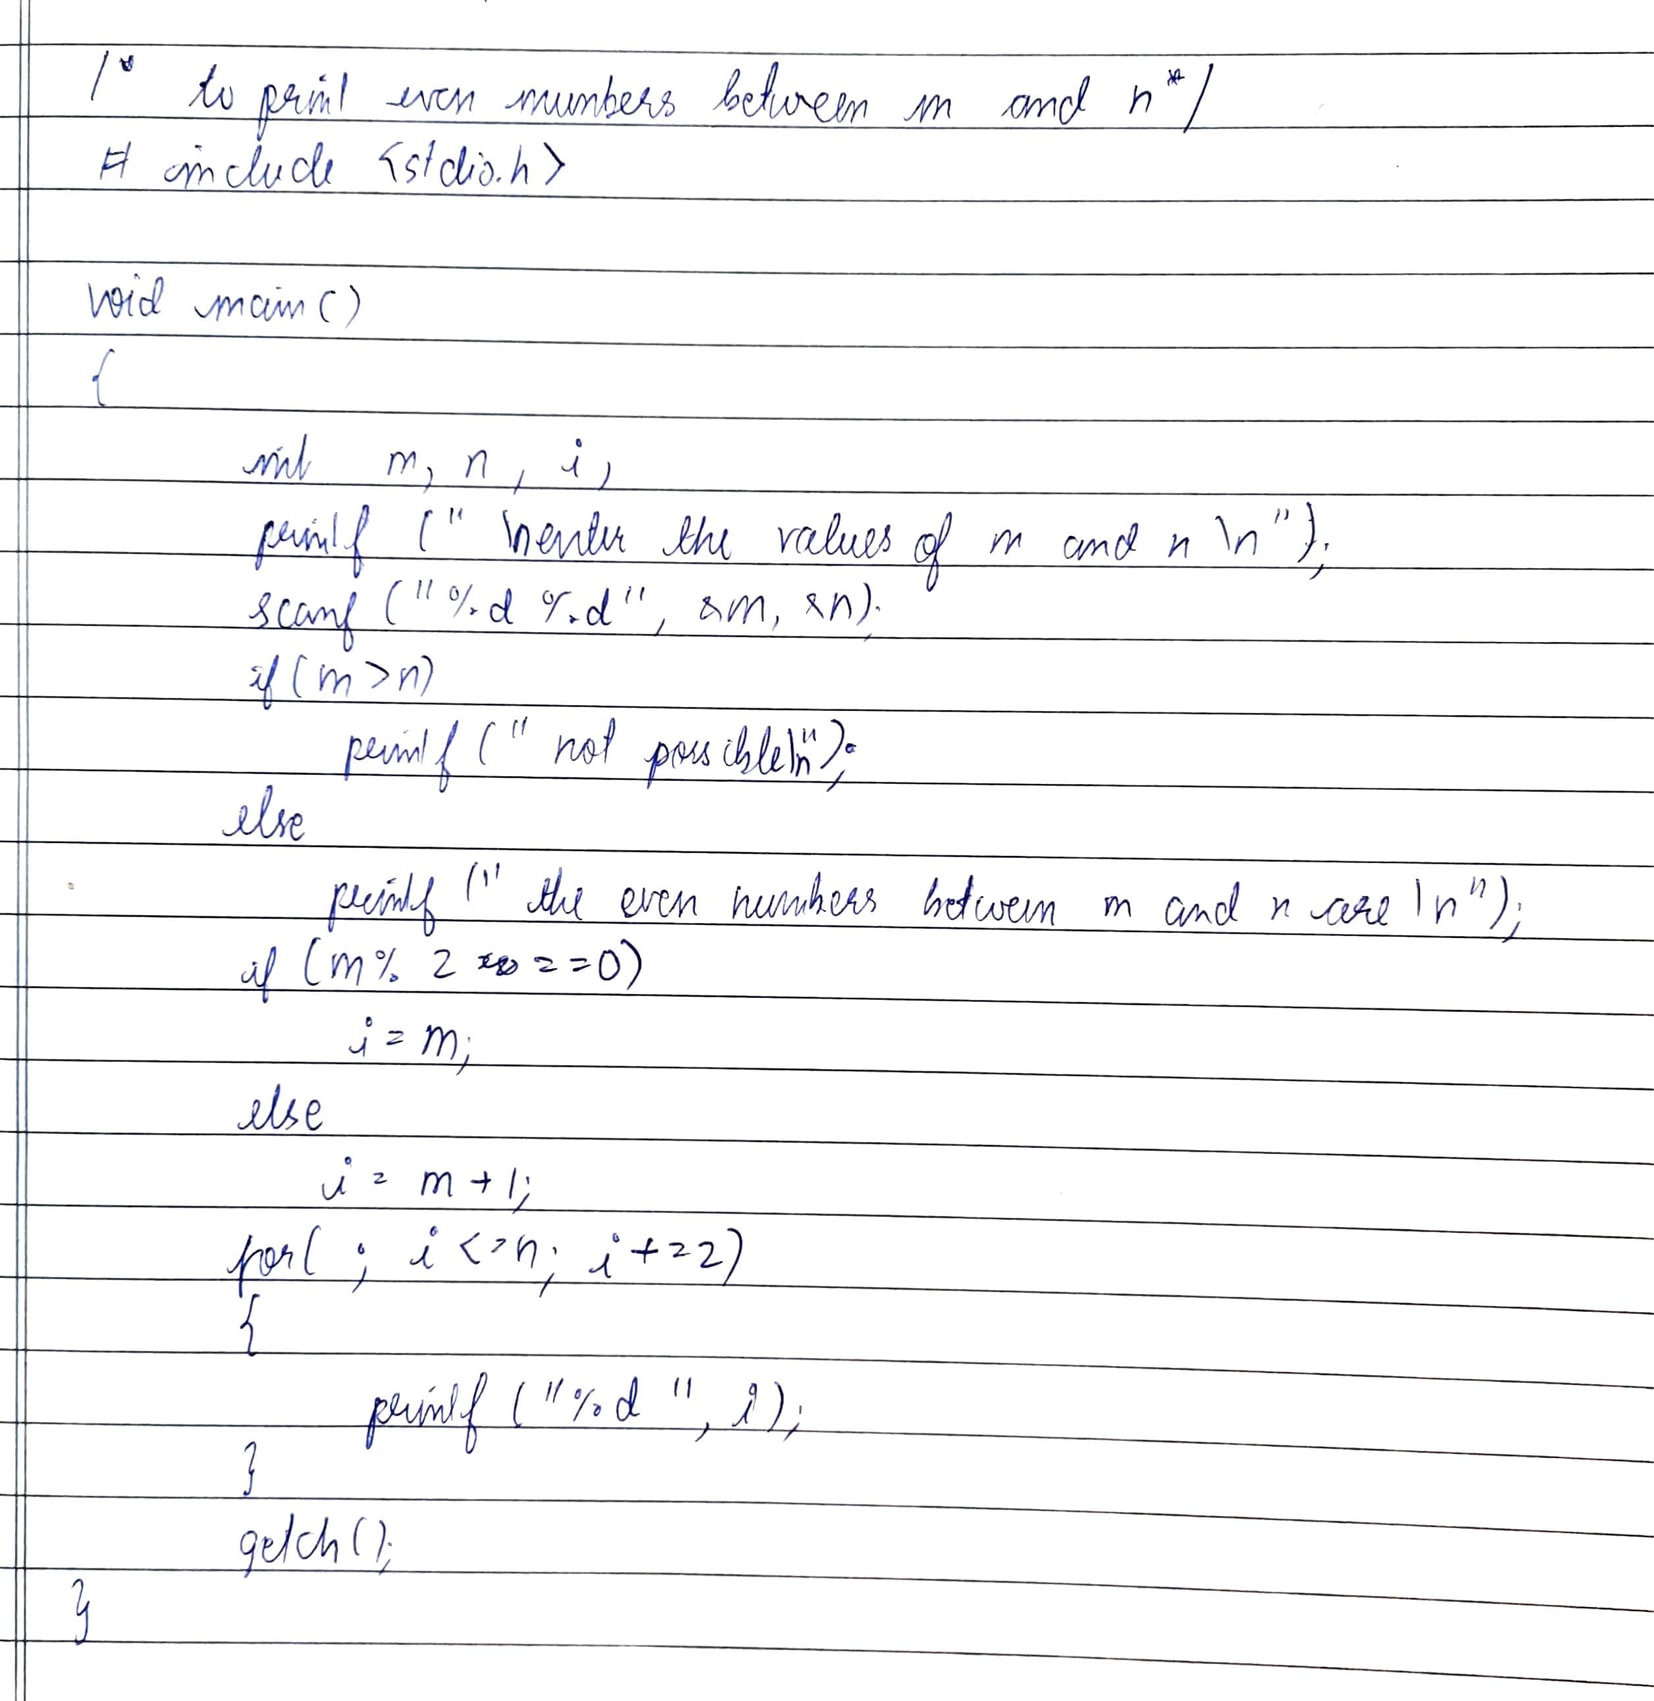 /* to print even numbers between m and n */
# include <stdio.h>
void main()
{
int m, n, i;
printf (" \nenter the values of m and n \n");
scanf ("%d %d", &m, &n);
if (m > n)
printf (" not possible\n");
else
printf (" the even numbers between m and n are \n");
if (m % 2 ==0)
i = m;
else
i = m + 1;
for( ; i <=n; i +=2)
{
printf ("%d ", i);
}
getch();
}